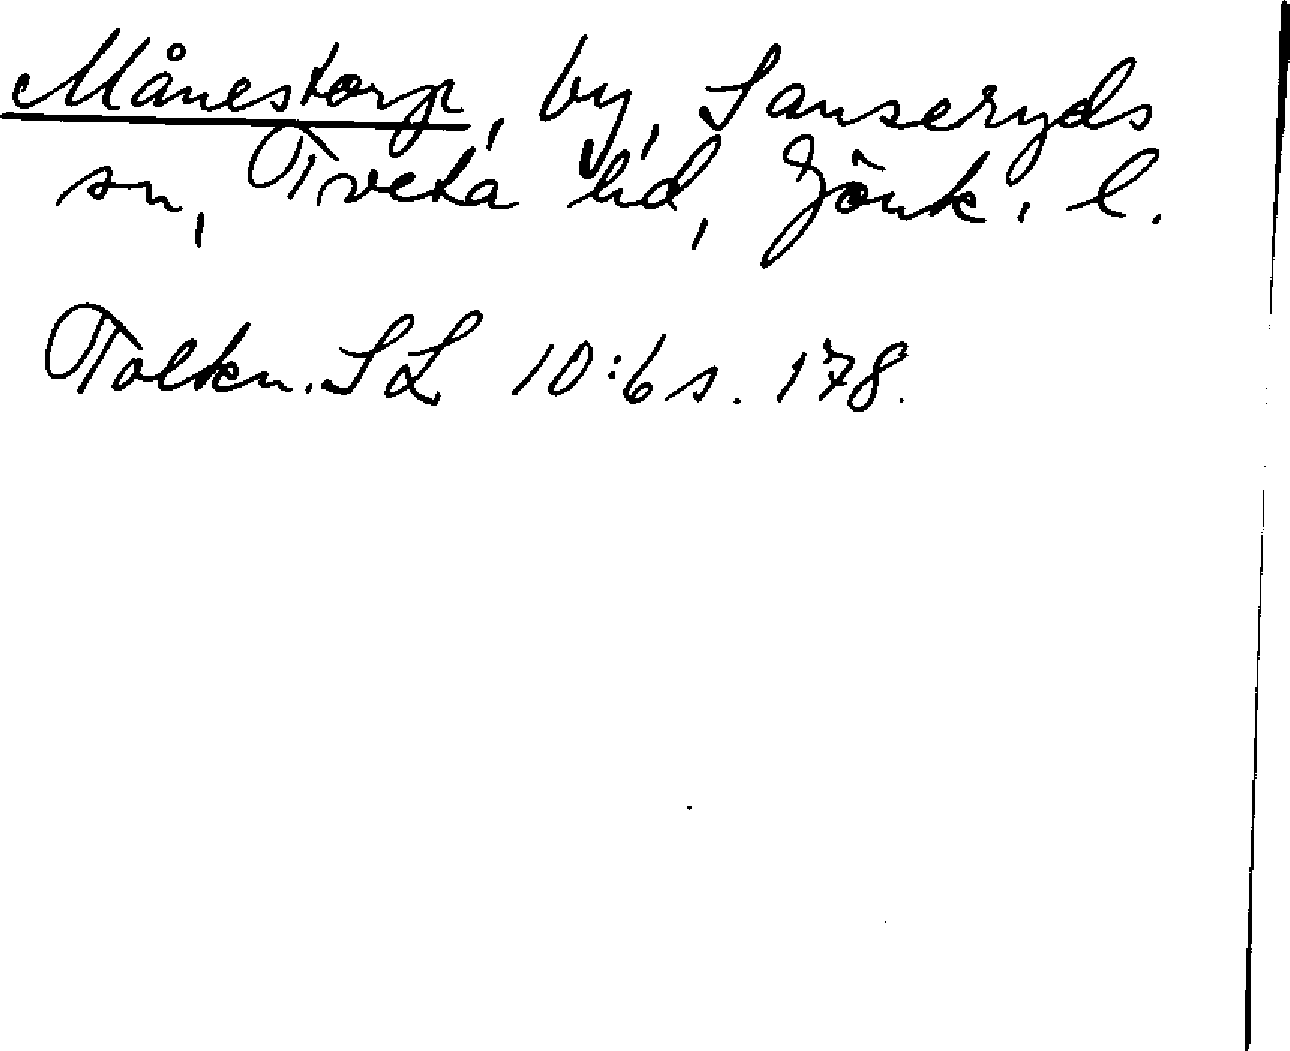 Månestorp, by, Sanseryds
sn, Tveta hd, Jönk. l.
Tolkn. SL 10:6 s. 178.